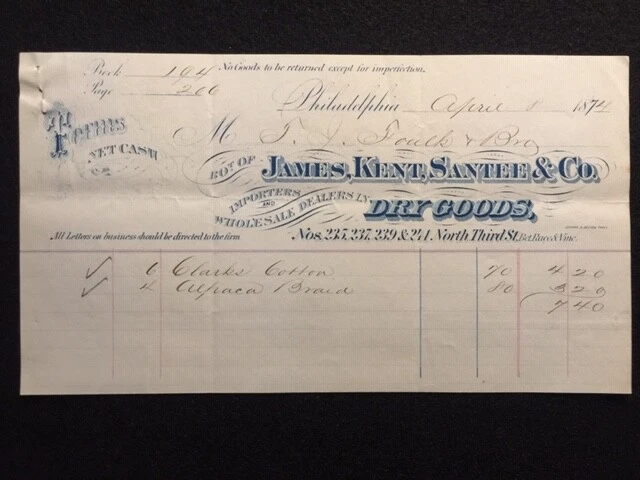 No Goods to be returned except for imperfection.
Book 194
Page 200
Philadelphia April 8 1874
Terms
NET CASH
M T. J. Foulk & Bro
BOT. OF JAMES, KENT, SANTEE & CO.
IMPORTERS AND WHOLESALE DEALERS IN
DRY GOODS,
All Letters on business should be directed to the firm
Nos. 235, 237, 239 & 241. North Third St. Bet. Race & Vine.
✓ 6 Clarks Cotton 70 4 20
✓ 4 Alpaca Braid 80 3 20
7 40